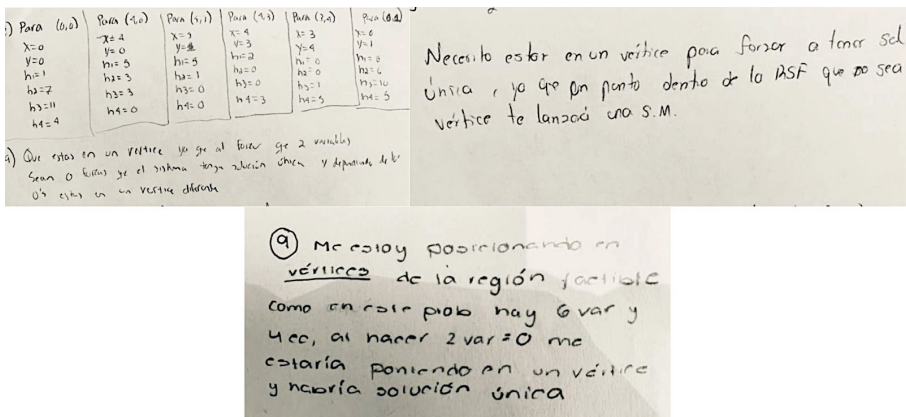 Para (0,0)
x=0
y=0
h1=1
h2=7
h3=11
h4=4
Para (4,0)
x=4
y=0
h1=5
h2=3
h3=3
h4=0
Para (5,1)
h1=5
h2=1
h3=0
h4=0
Para (4,3)
x=4
y=3
h1=2
h2=0
h3=0
h4=3
Para (3,4)
x=3
y=4
h1=0
h2=0
h3=1
h4=5
Para
x=0
y=1
h1=0
h2=6
h3=10
h4=5
9) Que estas en un vertice ya qe al forzar qe 2 variables
sean 0 qe el sistema tenga solución única y dependiendo de
0's estas en un vertice diferente
Necesito estar en un vértice para forzar a tener sol
única, ya que un punto dentro de la RSF que no sea
vértice te lanzará una S.M.
9 Me estoy posicionando en
vértices de la región factible
como en este prob hay 6 var y
4 ec, al hacer 2 var = 0 me
estaría poniendo en un vértice
y habría solución única